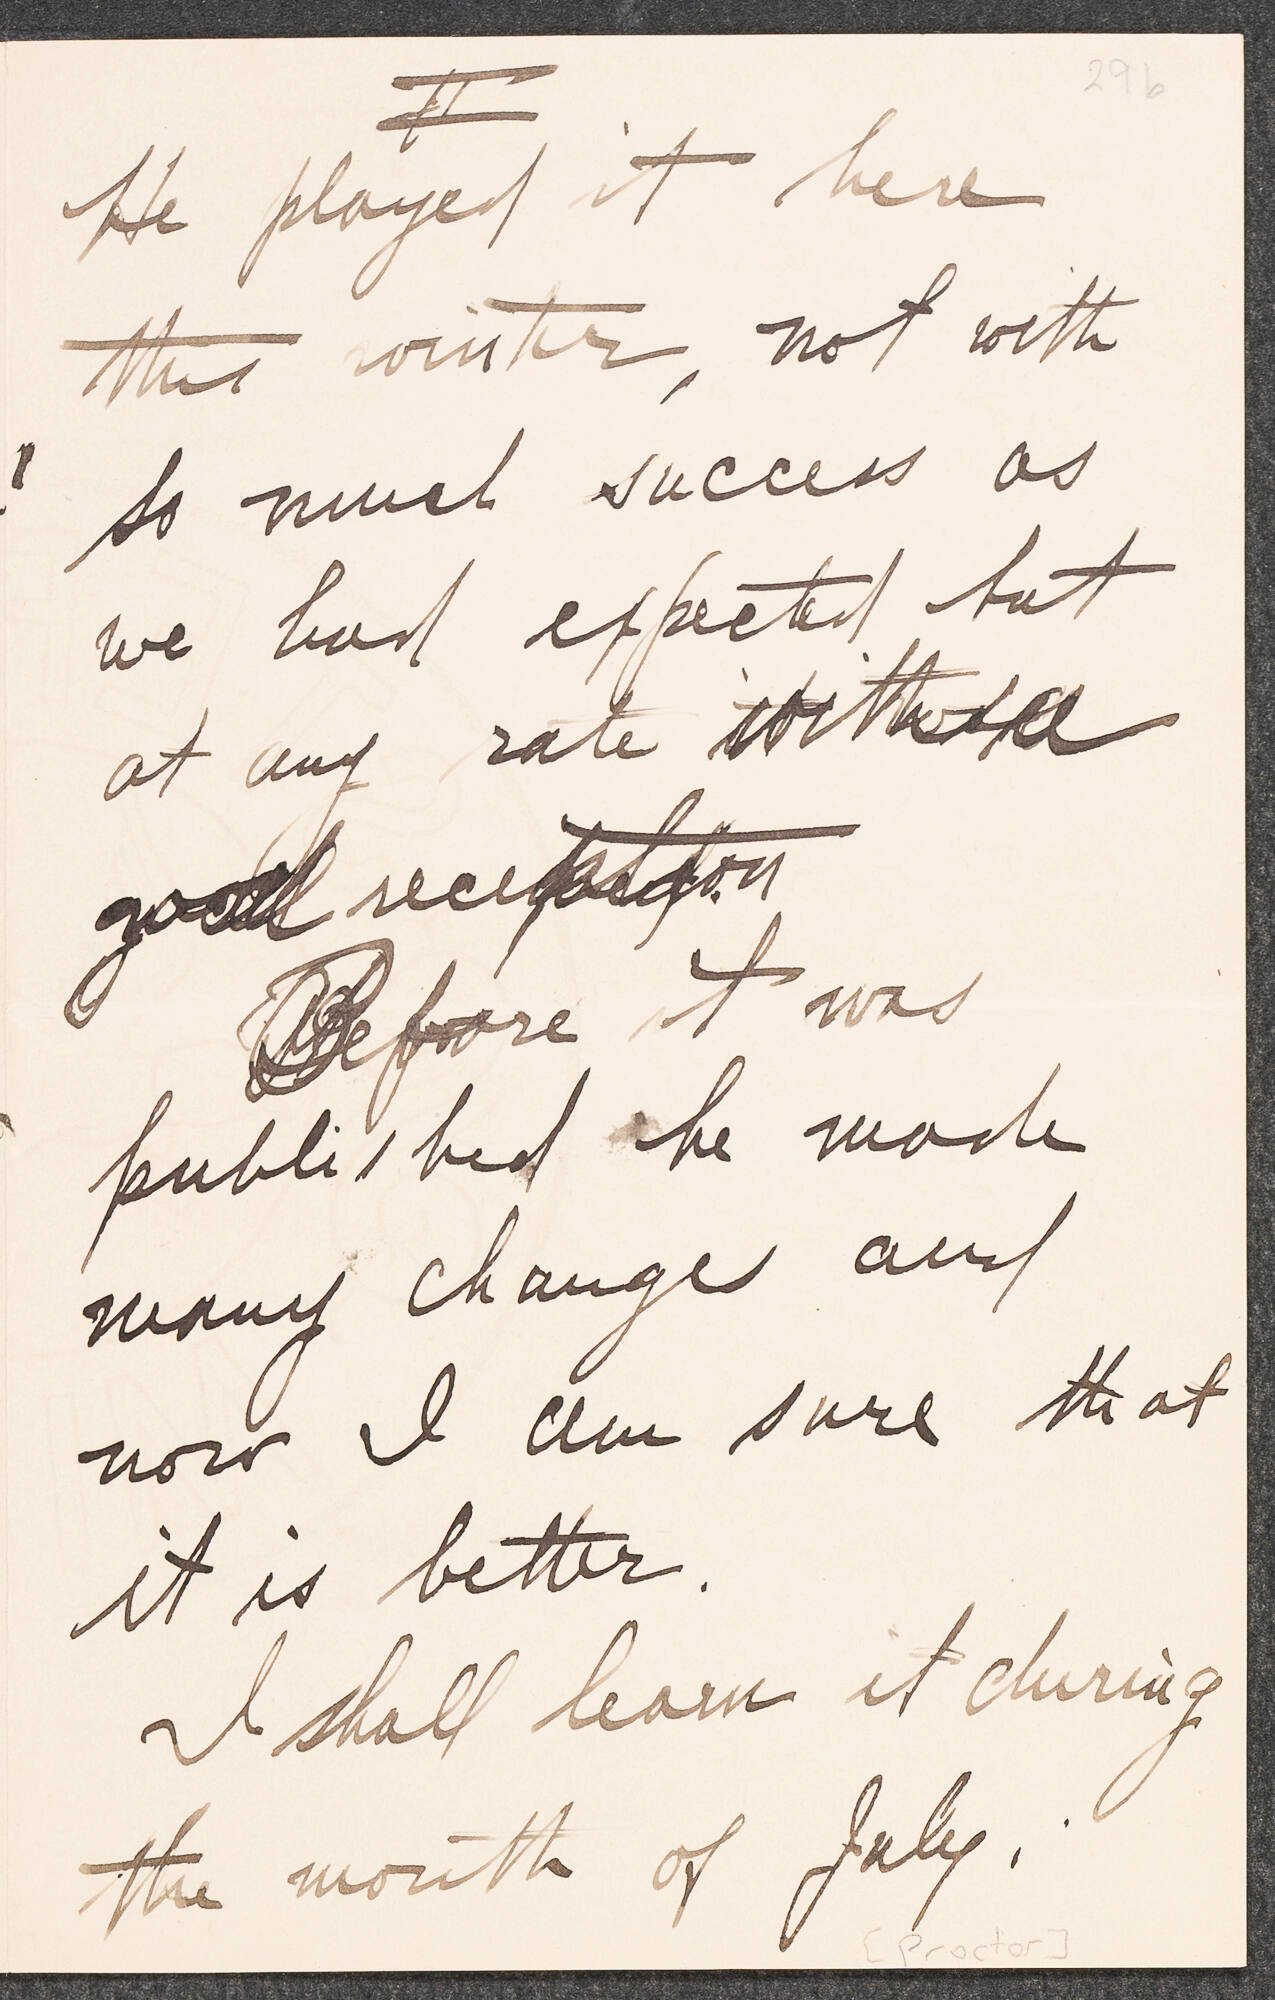 II
29b
He played it here
this winter, not with
so much success as
we had expected but
at any rate with a
good reception
Before it was
published he made
many changes and
now I am sure that
it is better.
I shall learn it during
the month of July.
[Proctor]